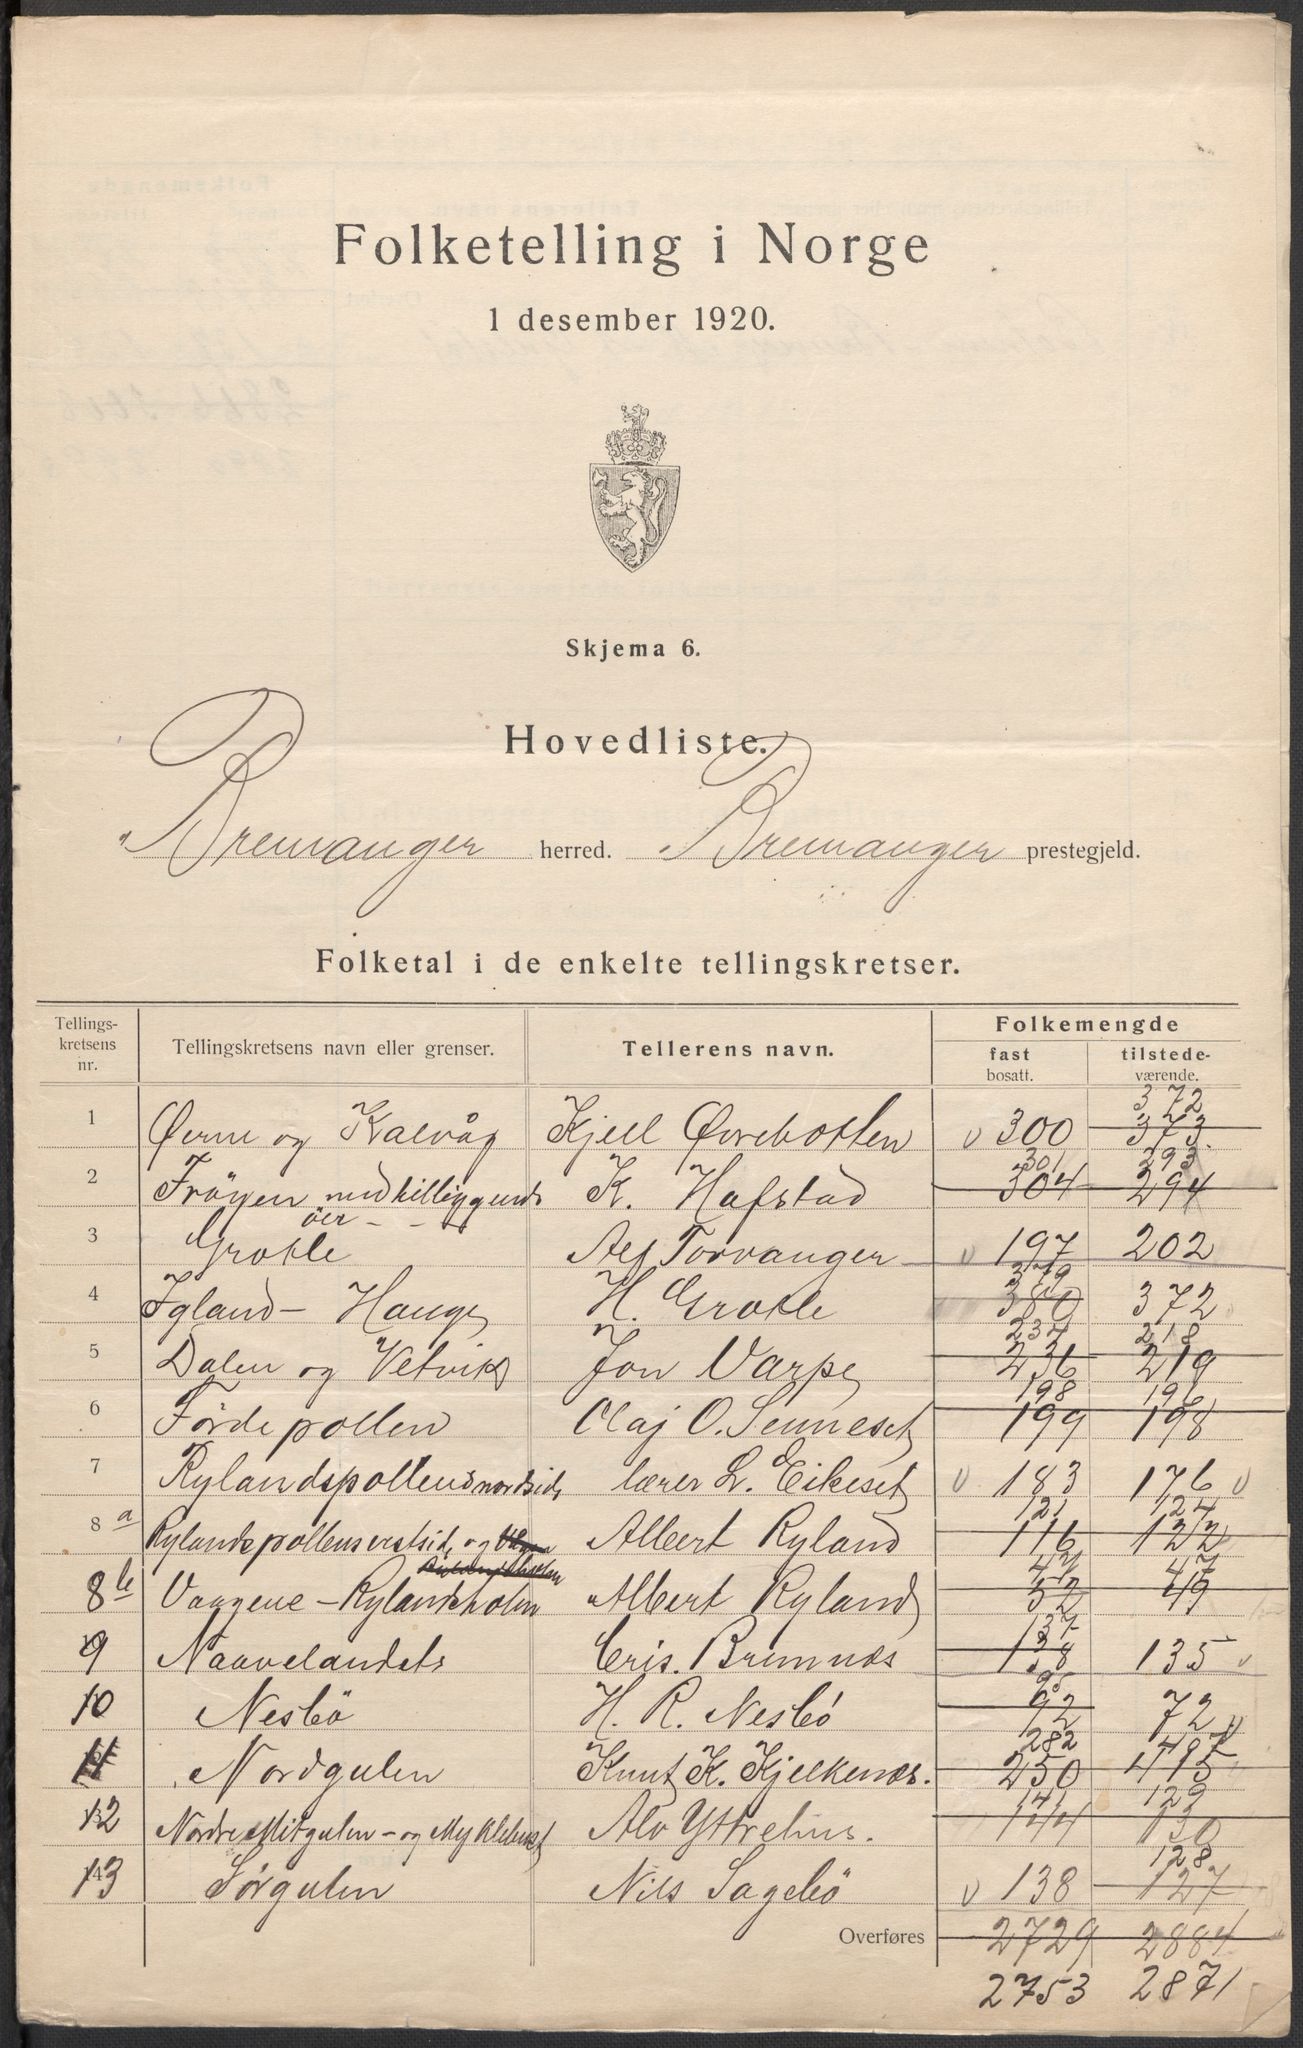 Folketelling i Norge
1 desember 1920.
Skjema 6.
Hovedliste.
Bremanger herred. Bremanger prestegjeld.
Folketal i de enkelte tellingskretser.
Tellings-kretsens nr. Tellingskretsens navn eller grenser. Tellerens navn. Folkemengde fast bosatt. tilstede-værende.
372
1 Øerne og Kalvåg Kjell Øvrebotten v 300 373.
301 293
2 Frøyen med tilliggende K. Hafstad 304 294
öer
3 Grotle Alf Torvanger v 197 202
379
4 Igland - Hauge H. Grotle 380 372
237 218
5 Dalen og Vetvik Jon Varpe 236 219
198
6 Førdepollen Olaf O. Senneset 199 198
7 Rylandspollens nordside lærer L. Eikeset v 183 176 v
121 124
8 a Rylandspollens vestside og Albert Ryland 116 122
47 47
8 b Vaagene - Rylandsholm Albert Ryland 52 49
137
9 Naavelandets Cris. Bremnæs 138 135 v
95
10 Nesbö H. R. Nesbö 92 72 v
282 497
11 Nordgulen Knut K. Kjelkenæs. 250 495
141 129
12 Nordre Mitgulen - og Myklebust Alv Yttrehus. 144 130
128
13 Sørgulen Nils Sagebö v 138 127
Overføres 2729 2884
2753 2871